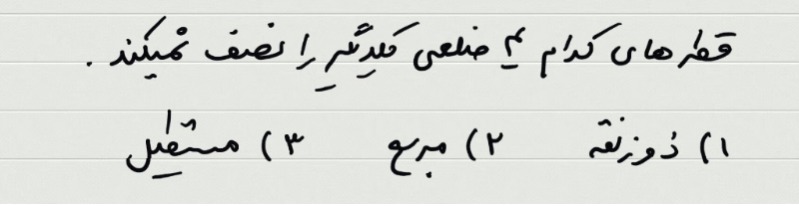 قطرهای کدام ۴ ضلعی یکدیگر را نصف نمیکند .
۱) ذوزنقه ۲) مربع ۳) مستطیل